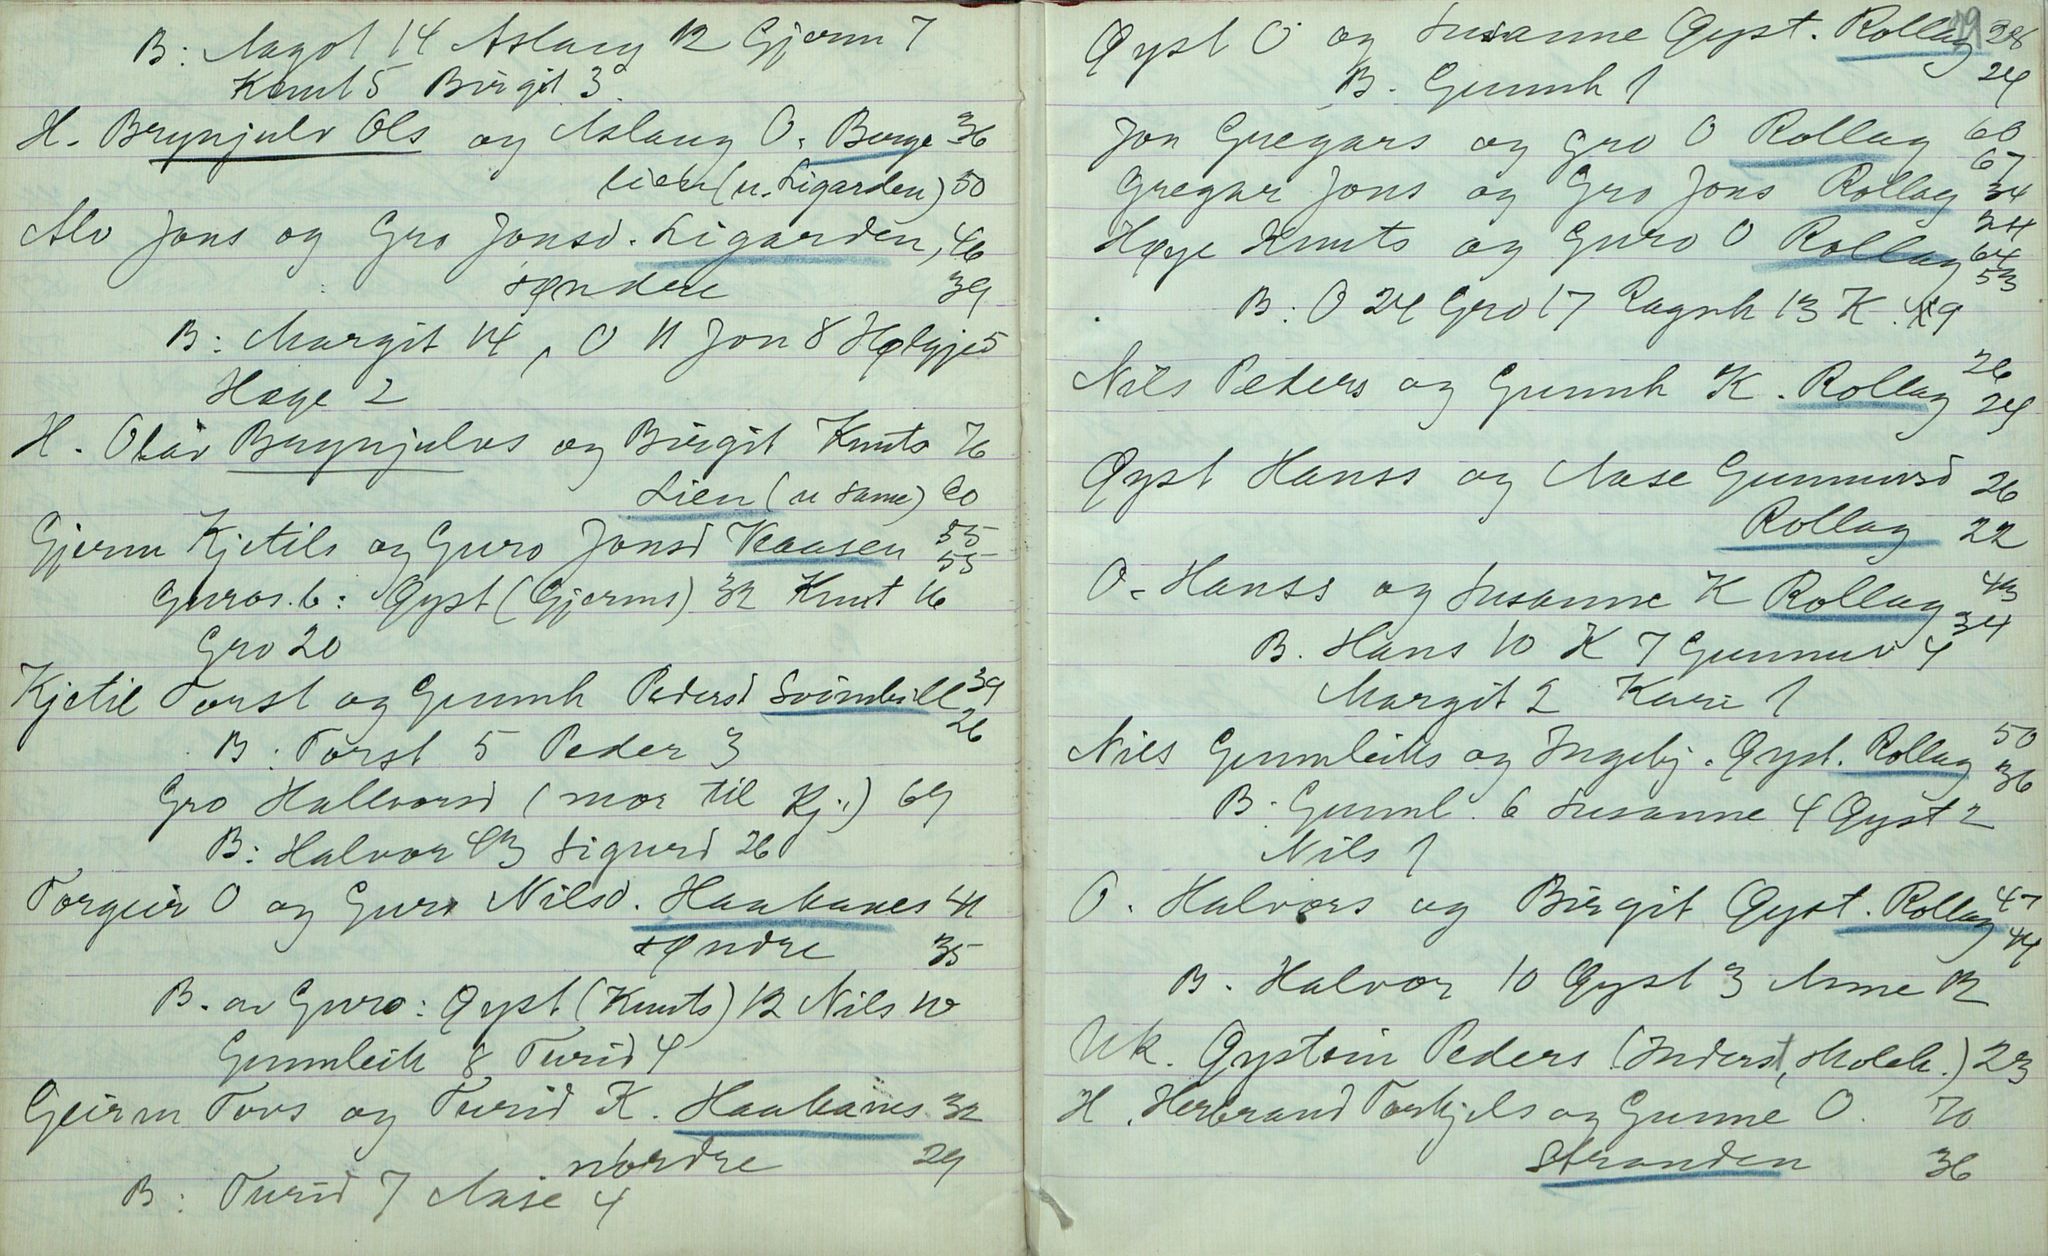 B: Aagot 14 Aslaug 12 Gjerm 7
Knut 5 Birgit 3
H. Brynjulv Ols og Aslaug O. Berge 36
lien (u. Ligarden) 50
Alv Jons og Gro Jonsd. Ligarden, 46
søndre 39
B: Margit 14, O 11 Jon 8 Hølgje 5
Hæge 2
H. Olav Brynjulvs og Birgit Knuts 76
Lien (u same) 60
Gjerm Kjetils og Guro Jonsd Kaasen 55
55
Guros b: Øyst (Gjerms) 32 Knut 16
Gro 20
Kjetil Torst og Gunnh Pedersd 39
26
B: Torst 5 Peder 3
Gro Hallvorsd (mor til Kj.) 69
B: Halvor 43 Sigurd 26
Torgeir O og Guro Nilsd. Haakanes 41
søndre 35
B. av Guro: Øyst (Knuts) 12 Nils 10
Gunnleik 8 Turid 4
Geirm Tovs og Turid K. Haakanes 32
nordre 29
B: Turid 7 Aase 4
Øyst O og Susanne Øyst. Rollag 28
24
B. Gunnh 1
Jon Gregars og Gro O Rollag 60
67
Gregar Jons og Gro Jons Rollag 34
24
Høye Knuts og Guro O Rollag 64
53
B: O 24 Gro 17 Ragnh 13 K. 9
Nils Peders og Gunnh K. Rollag 26
24
Øyst Hanss og Aase Gunnuvsd 26
Rollag 22
O. Hanss og Susanne K Rollag 43
34
B. Hans 10 K 7 Gunnuv 4
Margit 2 Kari 1
Nils Gunnleiks og Ingebj. Øyst. Rollag 50
36
B: Gunnl. 6 Susanne 4 Øyst 2
Nils 1
O. Halvors og Birgit Øyst. Rollag 47
44
B. Halvor 10 Øyst 3 Anne 12
Uk. Øystein Peders (Inderst, skoleh.) 23
H. Herbrand Torkjels og Gunne O. 70
Stranden 36